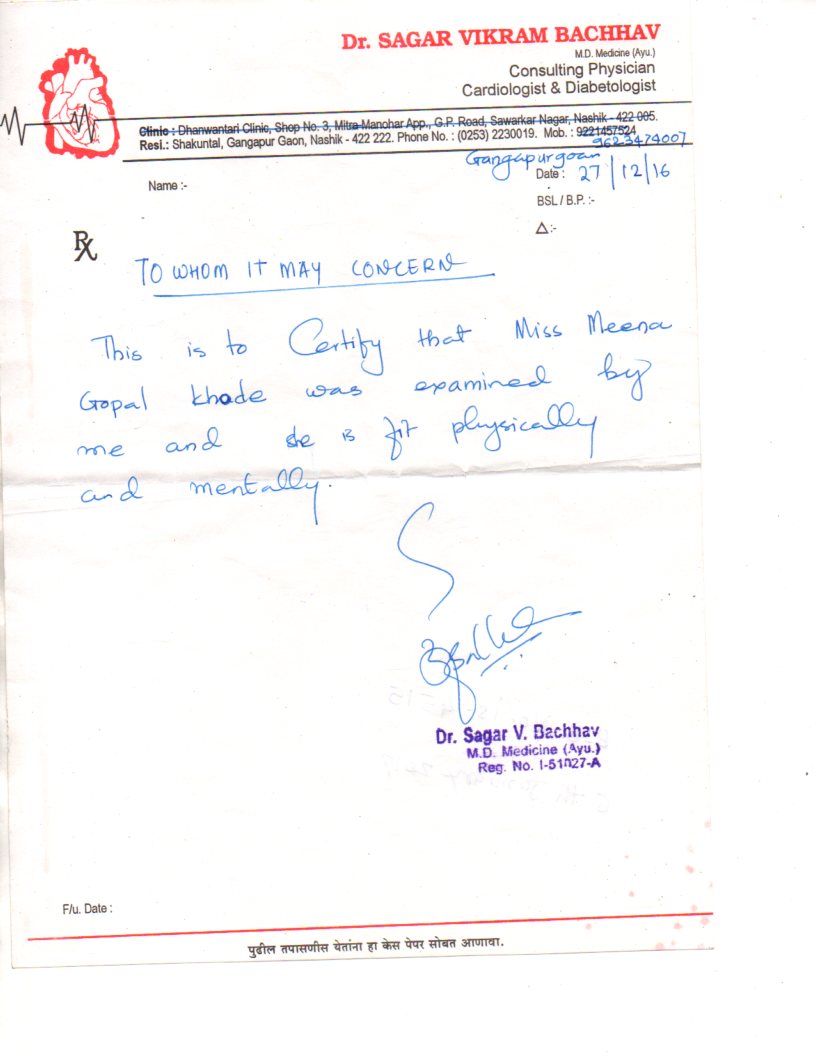 Dr. SAGAR VIKRAM BACHHAV
M.D. Medicine (Ayu.)
Consulting Physician
Cardiologist & Diabetologist
Clinic : Dhanwantari Clinic, Shop No. 3, Mitra Manohar App., G.P. Road, Sawarkar Nagar, Nashik - 422 005.
Resi.: Shakuntal, Gangapur Gaon, Nashik - 422 222. Phone No. : (0253) 2230019. Mob. : 9221457524
9623474007
Gangapurgoan
Name :-
Date : 27/12/16
BSL / B.P. :-
Δ:-
Rx
TO WHOM IT MAY CONCERN
This is to Certify that Miss Meena
Gopal khode was examined by
me and she is fit physically
and mentally.
Dr. Sagar V. Bachhav
M.D. Medicine (Ayu.)
Reg. No. I-51027-A
F/u. Date :
पुढील तपासणीस येतांना हा केस पेपर सोबत आणावा.